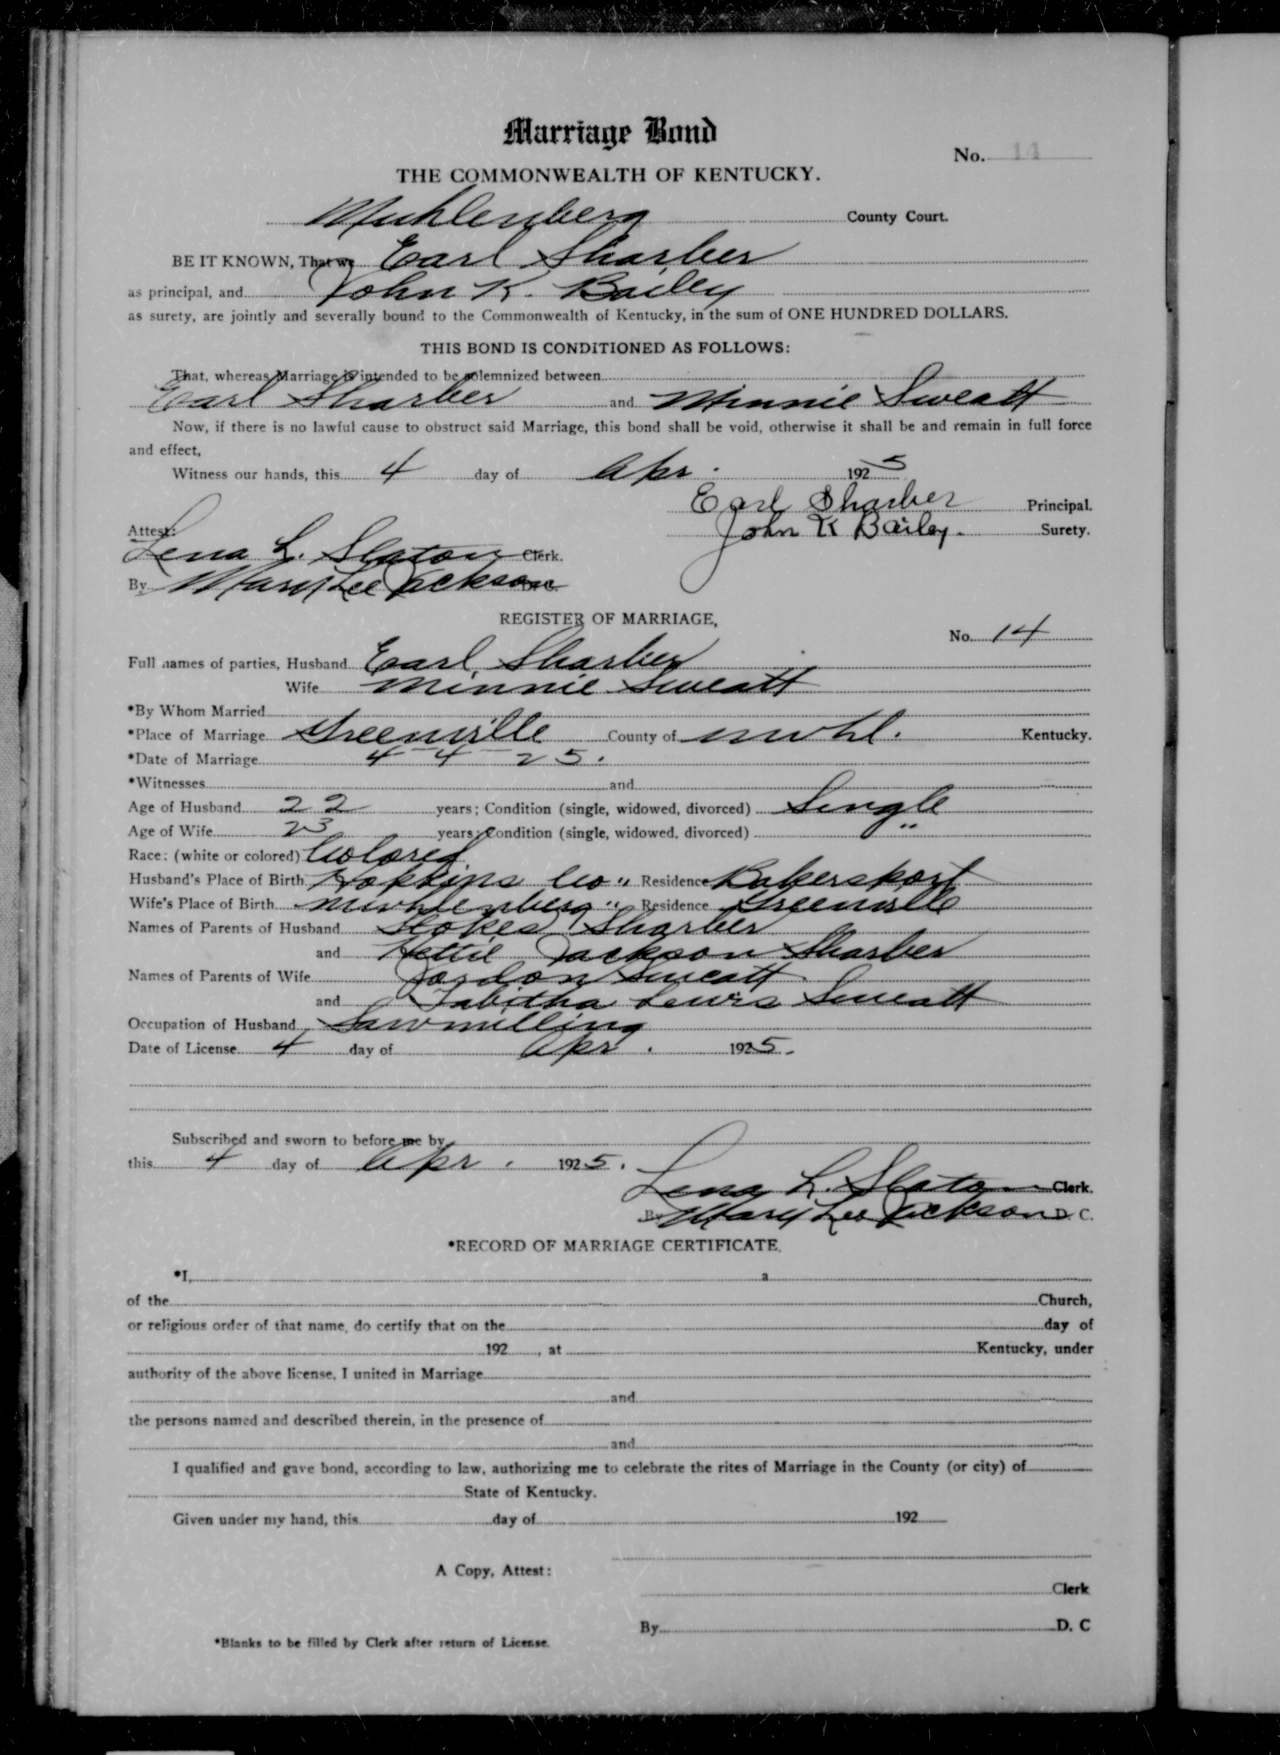 Marriage Bond
No. 14
THE COMMONWEALTH OF KENTUCKY.
Muhlenberg County Court.
BE IT KNOWN, That we Earl Sharber
as principal, and John K. Bailey
as surety, are jointly and severally bound to the Commonwealth of Kentucky, in the sum of ONE HUNDRED DOLLARS.
THIS BOND IS CONDITIONED AS FOLLOWS:
That, whereas Marriage is intended to be solemnized between
Earl Sharber and Minnie Sweatt
Now, if there is no lawful cause to obstruct said Marriage, this bond shall be void, otherwise it shall be and remain in full force
and effect,
Witness our hands, this 4 day of Apr. 1925
Earl Sharber Principal.
John K Bailey. Surety.
Attest:
Lena L. Slaton Clerk.
By Mary Lee Jackson D.C.
REGISTER OF MARRIAGE,
No. 14
Full names of parties, Husband Earl Sharber
Wife Minnie Sweatt
*By Whom Married
*Place of Marriage Greenville County of Muhl. Kentucky.
*Date of Marriage 4-4-25.
*Witnesses and
Age of Husband 22 years; Condition (single, widowed, divorced) Single
Age of Wife 23 years; Condition (single, widowed, divorced) "
Race: (white or colored) Colored
Husband's Place of Birth Hopkins Co " Residence Bakersport
Wife's Place of Birth Muhlenberg " Residence Greenville
Names of Parents of Husband Stokes Sharber
and Hettie Jackson Sharber
Names of Parents of Wife Jordon Sweatt
and Tabitha Lewis Sweatt
Occupation of Husband Sawmilling
Date of License 4 day of Apr. 1925.
Subscribed and sworn to before me by
this 4 day of Apr. 1925.
Lena L. Slaton Clerk.
By Mary Lee Jackson D. C.
*RECORD OF MARRIAGE CERTIFICATE.
*I, a
of the Church,
or religious order of that name, do certify that on the day of
192 , at Kentucky, under
authority of the above license, I united in Marriage
and
the persons named and described therein, in the presence of
and
I qualified and gave bond, according to law, authorizing me to celebrate the rites of Marriage in the County (or city) of
State of Kentucky.
Given under my hand, this day of 192
A Copy, Attest:
Clerk
By D. C
*Blanks to be filled by Clerk after return of License.